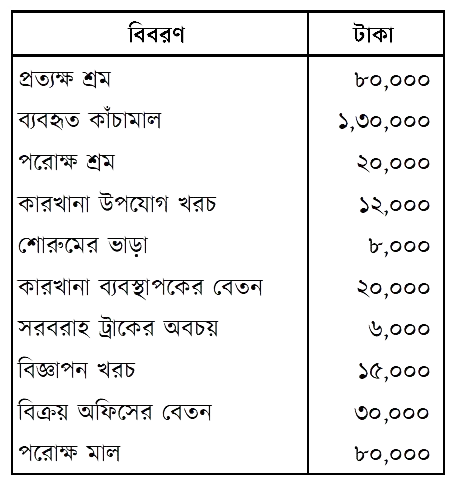 বিবরণ টাকা
প্রত্যক্ষ শ্রম ৮০,০০০
ব্যবহৃত কাঁচামাল ১,৩০,০০০
পরোক্ষ শ্রম ২০,০০০
কারখানা উপযোগ খরচ ১২,০০০
শোরুমের ভাড়া ৮,০০০
কারখানা ব্যবস্থাপকের বেতন ২০,০০০
সরবরাহ ট্রাকের অবচয় ৬,০০০
বিজ্ঞাপন খরচ ১৫,০০০
বিক্রয় অফিসের বেতন ৩০,০০০
পরোক্ষ মাল ৮০,০০০